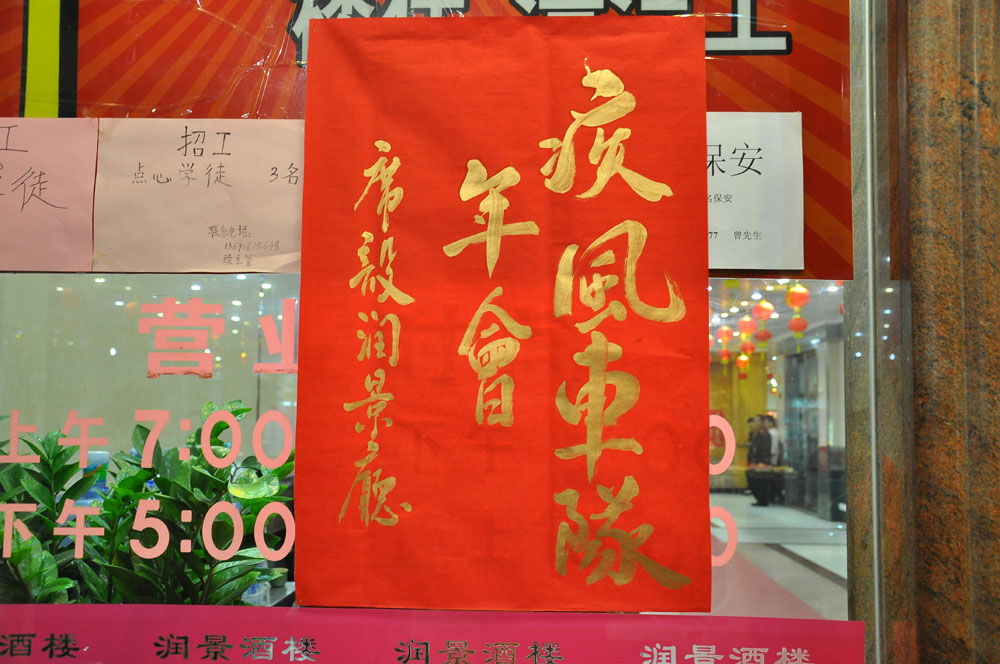 疾風車隊
年會
席設润景廳
招工
点心学徒 3名
联系电话:
陈主管
工
学徒
保安
名保安
77 曾先生
营业
上午7:00
下午5:00
酒楼 润景酒楼 润景酒楼 润景酒楼